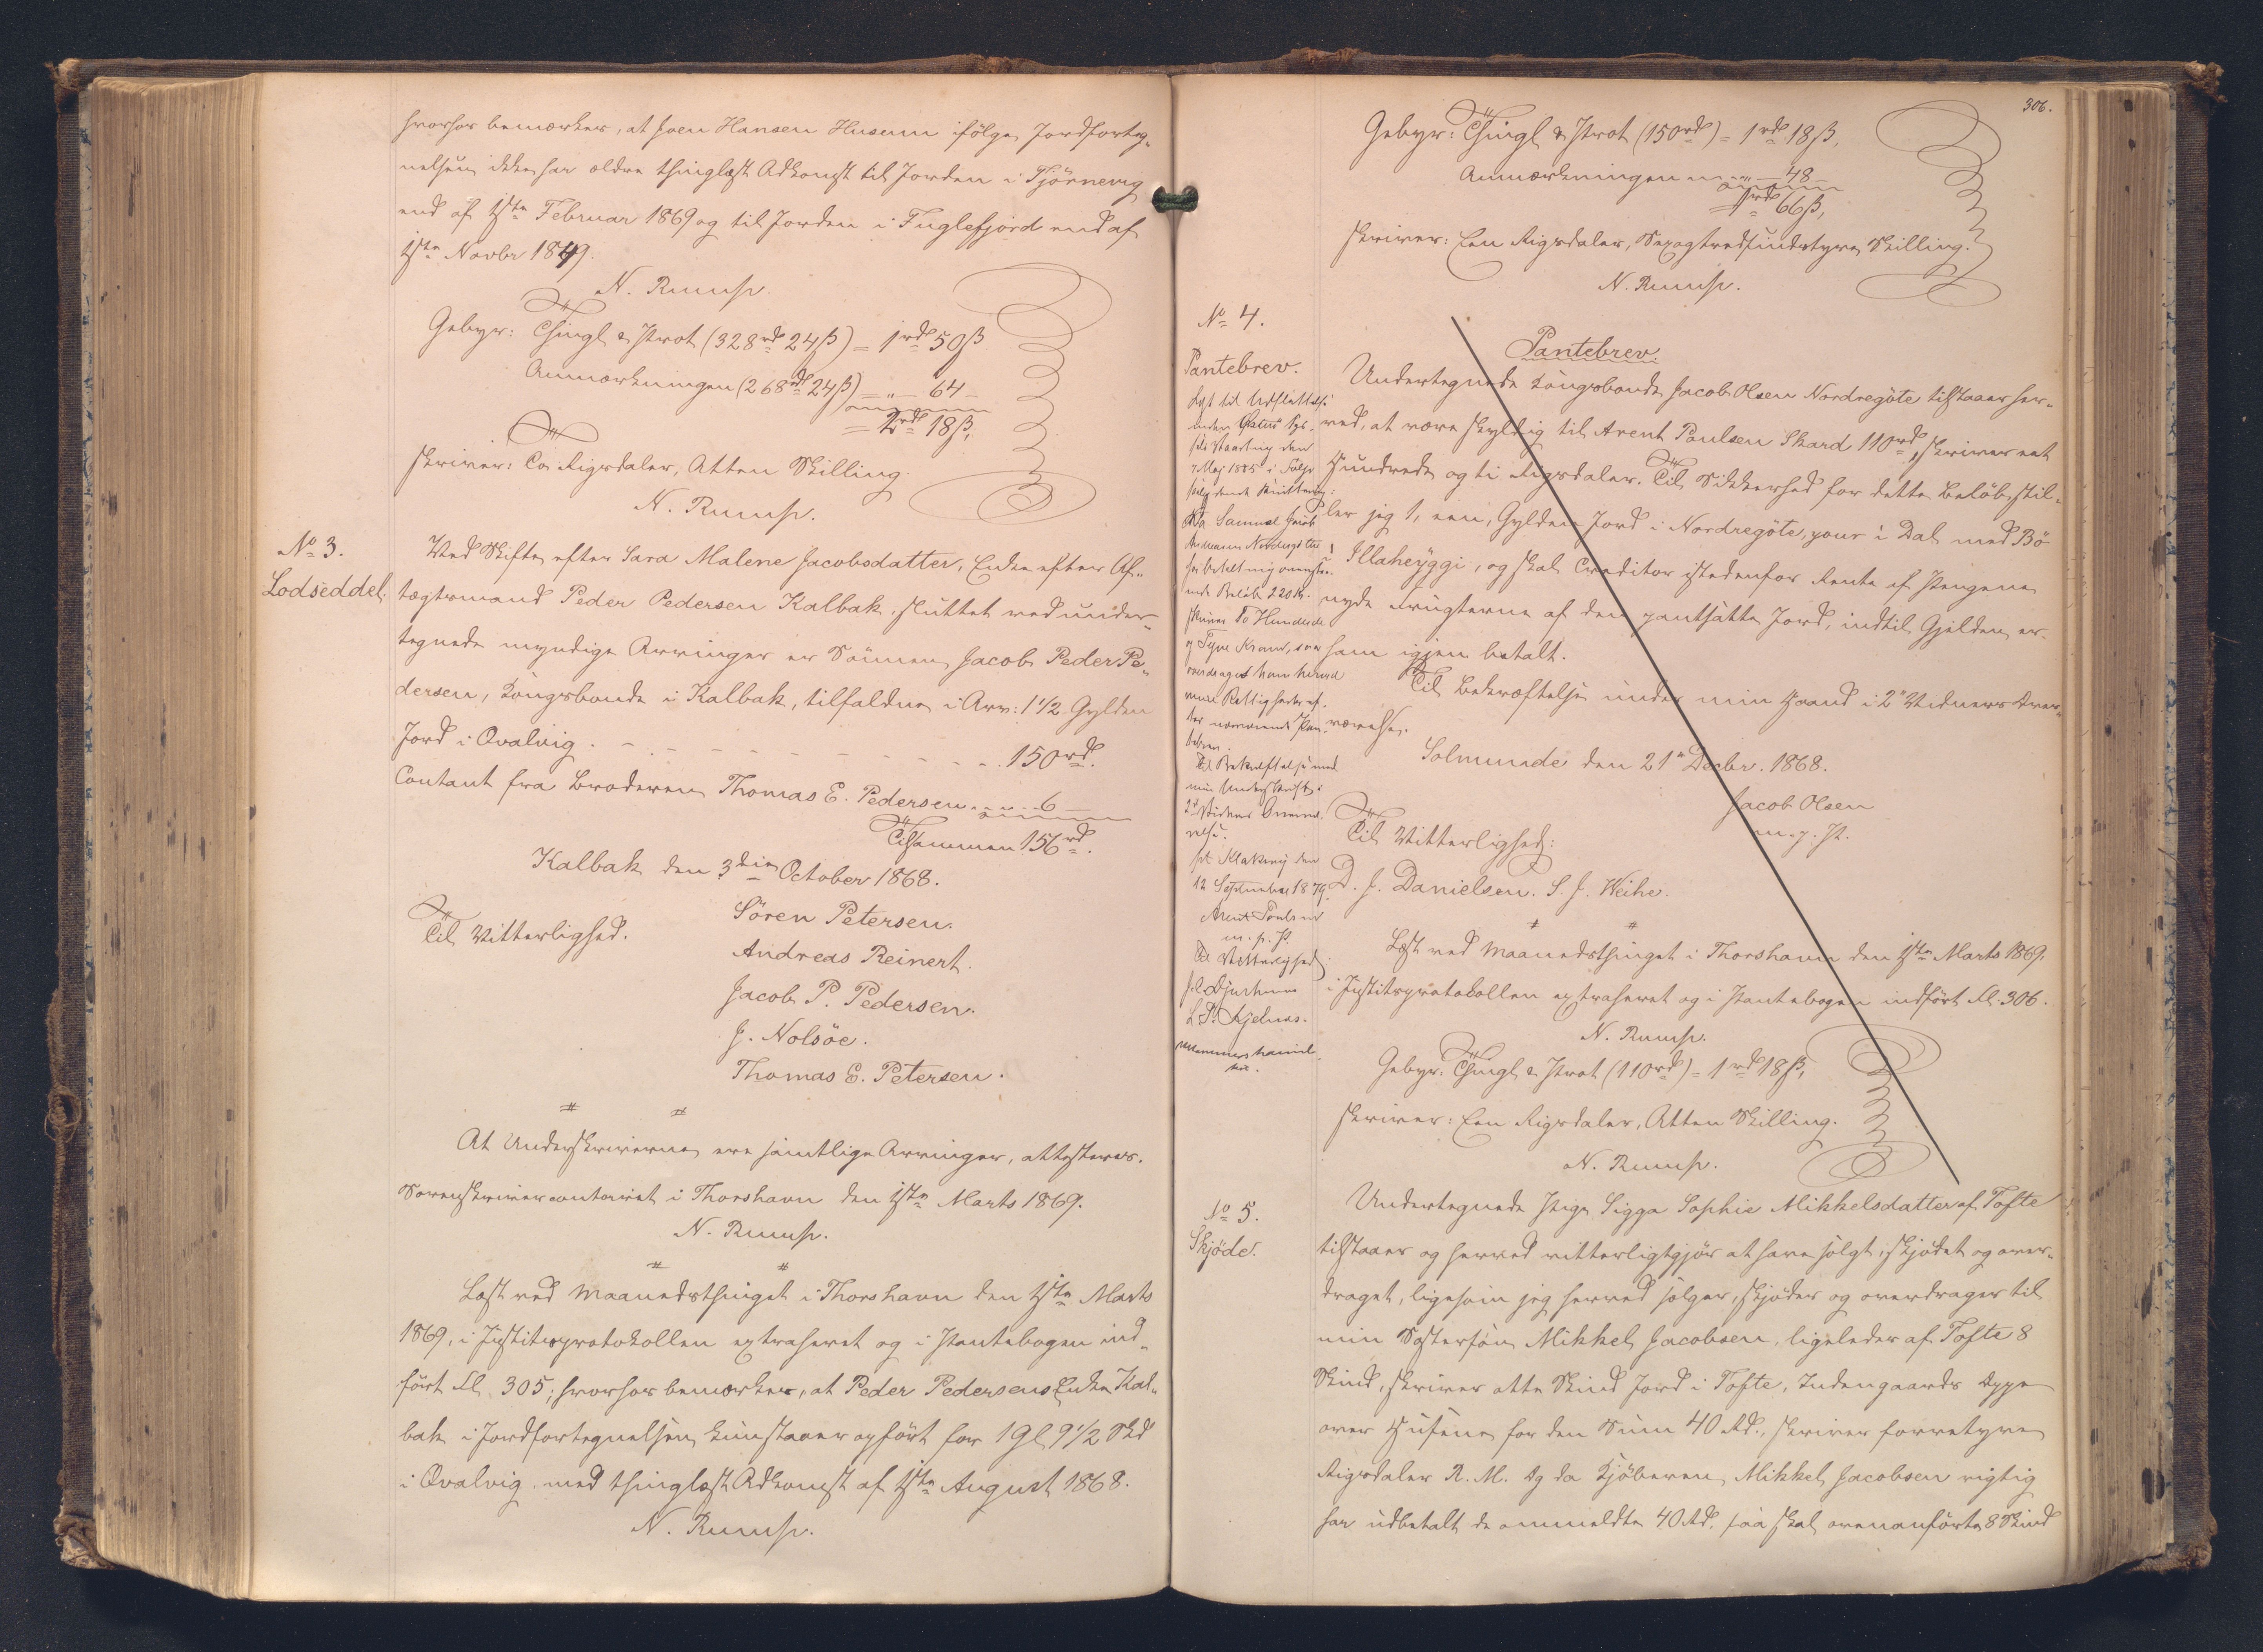 hvorhos bemærkes, at Joen Hansen Husum ifölge Jordforteg-
nelsen ikke har ældre thinglæst Adkomst til Jorden i Tjörnevig
end af 1ste Februar 1869 og til Jorden i Fuglefjord end af
1ste Novbr 1849.
N. Rump.
Gebyr: Thingl & Prot (328rd 24ß) = 1rd 50ß
Anmærkningen (268rd 24ß) — " — 64 —
= 2rd 18ß,
skriver: To Rigsdaler, Atten Skilling.
N. Rump.
No 3.
Lodseddel.
Ved Skifte efter Sara Malene Jacobsdatter, Enke efter Af-
tægtsmand Peder Pedersen Kalbak, sluttet ved under-
tegnede myndige Arvinger er Sönnen Jacob Peder Pe-
dersen, Kongsbonde i Kalbak, tilfalden i Arv: 1 1/2 Gylden
Jord i Qvalvig . - - - - - - - 150rd.
Contant fra Broderen Thomas E. Pedersen - " - " - 6 —
Tilsammen 156rd.
Kalbak den 3die October 1868.
Til Vitterlighed.
Sören Petersen.
Andreas Reinert.
Jacob P. Pedersen.
J. Nolsöe.
Thomas E. Petersen.
At Underskriverne ere samtlige Arvinger, attesteres.
Sorenskrivercontoiret i Thorshavn den 1ste Marts 1869.
N. Rump.
Læst ved Maanedsthinget i Thorshavn den 1ste Marts
1869, i Justitsprotokollen extraheret og i Pantebogen ind-
fört Fol. 305; hvorhos bemærkes, at Peder Pedersens Enke Kal-
bak i Jordfortegnelsen kun staaer opfört for 1 Gl 9 1/2 Skd
i Qvalvig med thinglæst Adkomst af 1ste August 1868.
N. Rump.
306.
Gebyr: Thingl & Prot (150rd) = 1rd 18ß,
Anmærkningen — " — 48 —
= 1rd 66ß,
skriver: Een Rigsdaler, Sexogtredsindstyve Skilling.
N. Rump.
No 4.
Pantebrev.
Læst til Udslettelse
inden Österö Sys-
sels Vaarting den
7 Maj 1885 i Følge
saalydende Kvittering:
Da Samuel Jacob
Andreasen Nordregöte
har betalt mig ovenstaa-
ende Beløb 220 Kr.
skriver To Hundrede
og Tyve Kroner, saa
overdrages ham herved
mine Rettigheder ef-
ter nærværende Pan-
tebrev.
Til Bekræftelse med
min Underskrift i
2de Vidners Overvæ-
relse.
pt Klaksvig den
12 September 1879.
Arent Poulsen
m. p. P.
Til Vitterlighed:
J. C. Djurhuus
L. P. Kjelnæs.
Pantebrev.
Undertegnede Kongsbonde Jacob Olsen Nordregöte tilstaaer her-
ved, at være skyldig til Arent Poulsen Skard 110rd, skriver eet
Hundrede og ti Rigsdaler. Til Sikkerhed for dette Belöb, stil-
ler jeg 1, een, Gylden Jord i Nordregöte, paa i Dal med Bö
i Illaheyggi, og skal Creditor istedenfor Rente af Pengene
nyde Frugterne af den pantsatte Jord, indtil Gjelden er
ham igjen betalt.
Til Bekræftelse under min Haand i 2" Vidners Over-
værelse.
Solmunde den 21" Decbr. 1868.
Jacob Olsen
m. p. P.
Til Vitterlighed:
D. J. Danielsen. S. J. Weihe.
Læst ved Maanedsthinget i Thorshavn den 1ste Marts 1869.
i Justitsprotokollen extraheret og i Pantebogen indfört Fol. 306.
N. Rump.
Gebyr: Thingl & Prot (110rd) = 1rd 18ß,
skriver: Een Rigsdaler, Atten Skilling.
N. Rump.
No 5.
Skjöde.
Undertegnede Pige Sigga Sophie Mikkelsdatter af Tofte
tilstaaer og herved vitterliggjör at have solgt, skjödet og over-
draget, ligesom jeg herved sælger, skjöder og overdrager til
min Sösterson Mikkel Jacobsen, ligeledes af Tofte 8
Skind, skriver otte Skind Jord i Tofte, Indengaards Oppe
over Husene for den Sum 40 Rd., skriver fyrretyve
Rigsdaler R. M. Og da Kjöberen Mikkel Jacobsen rigtig
har udbetalt de ommeldte 40 Rd. saa skal ovenanförte 8 Skind